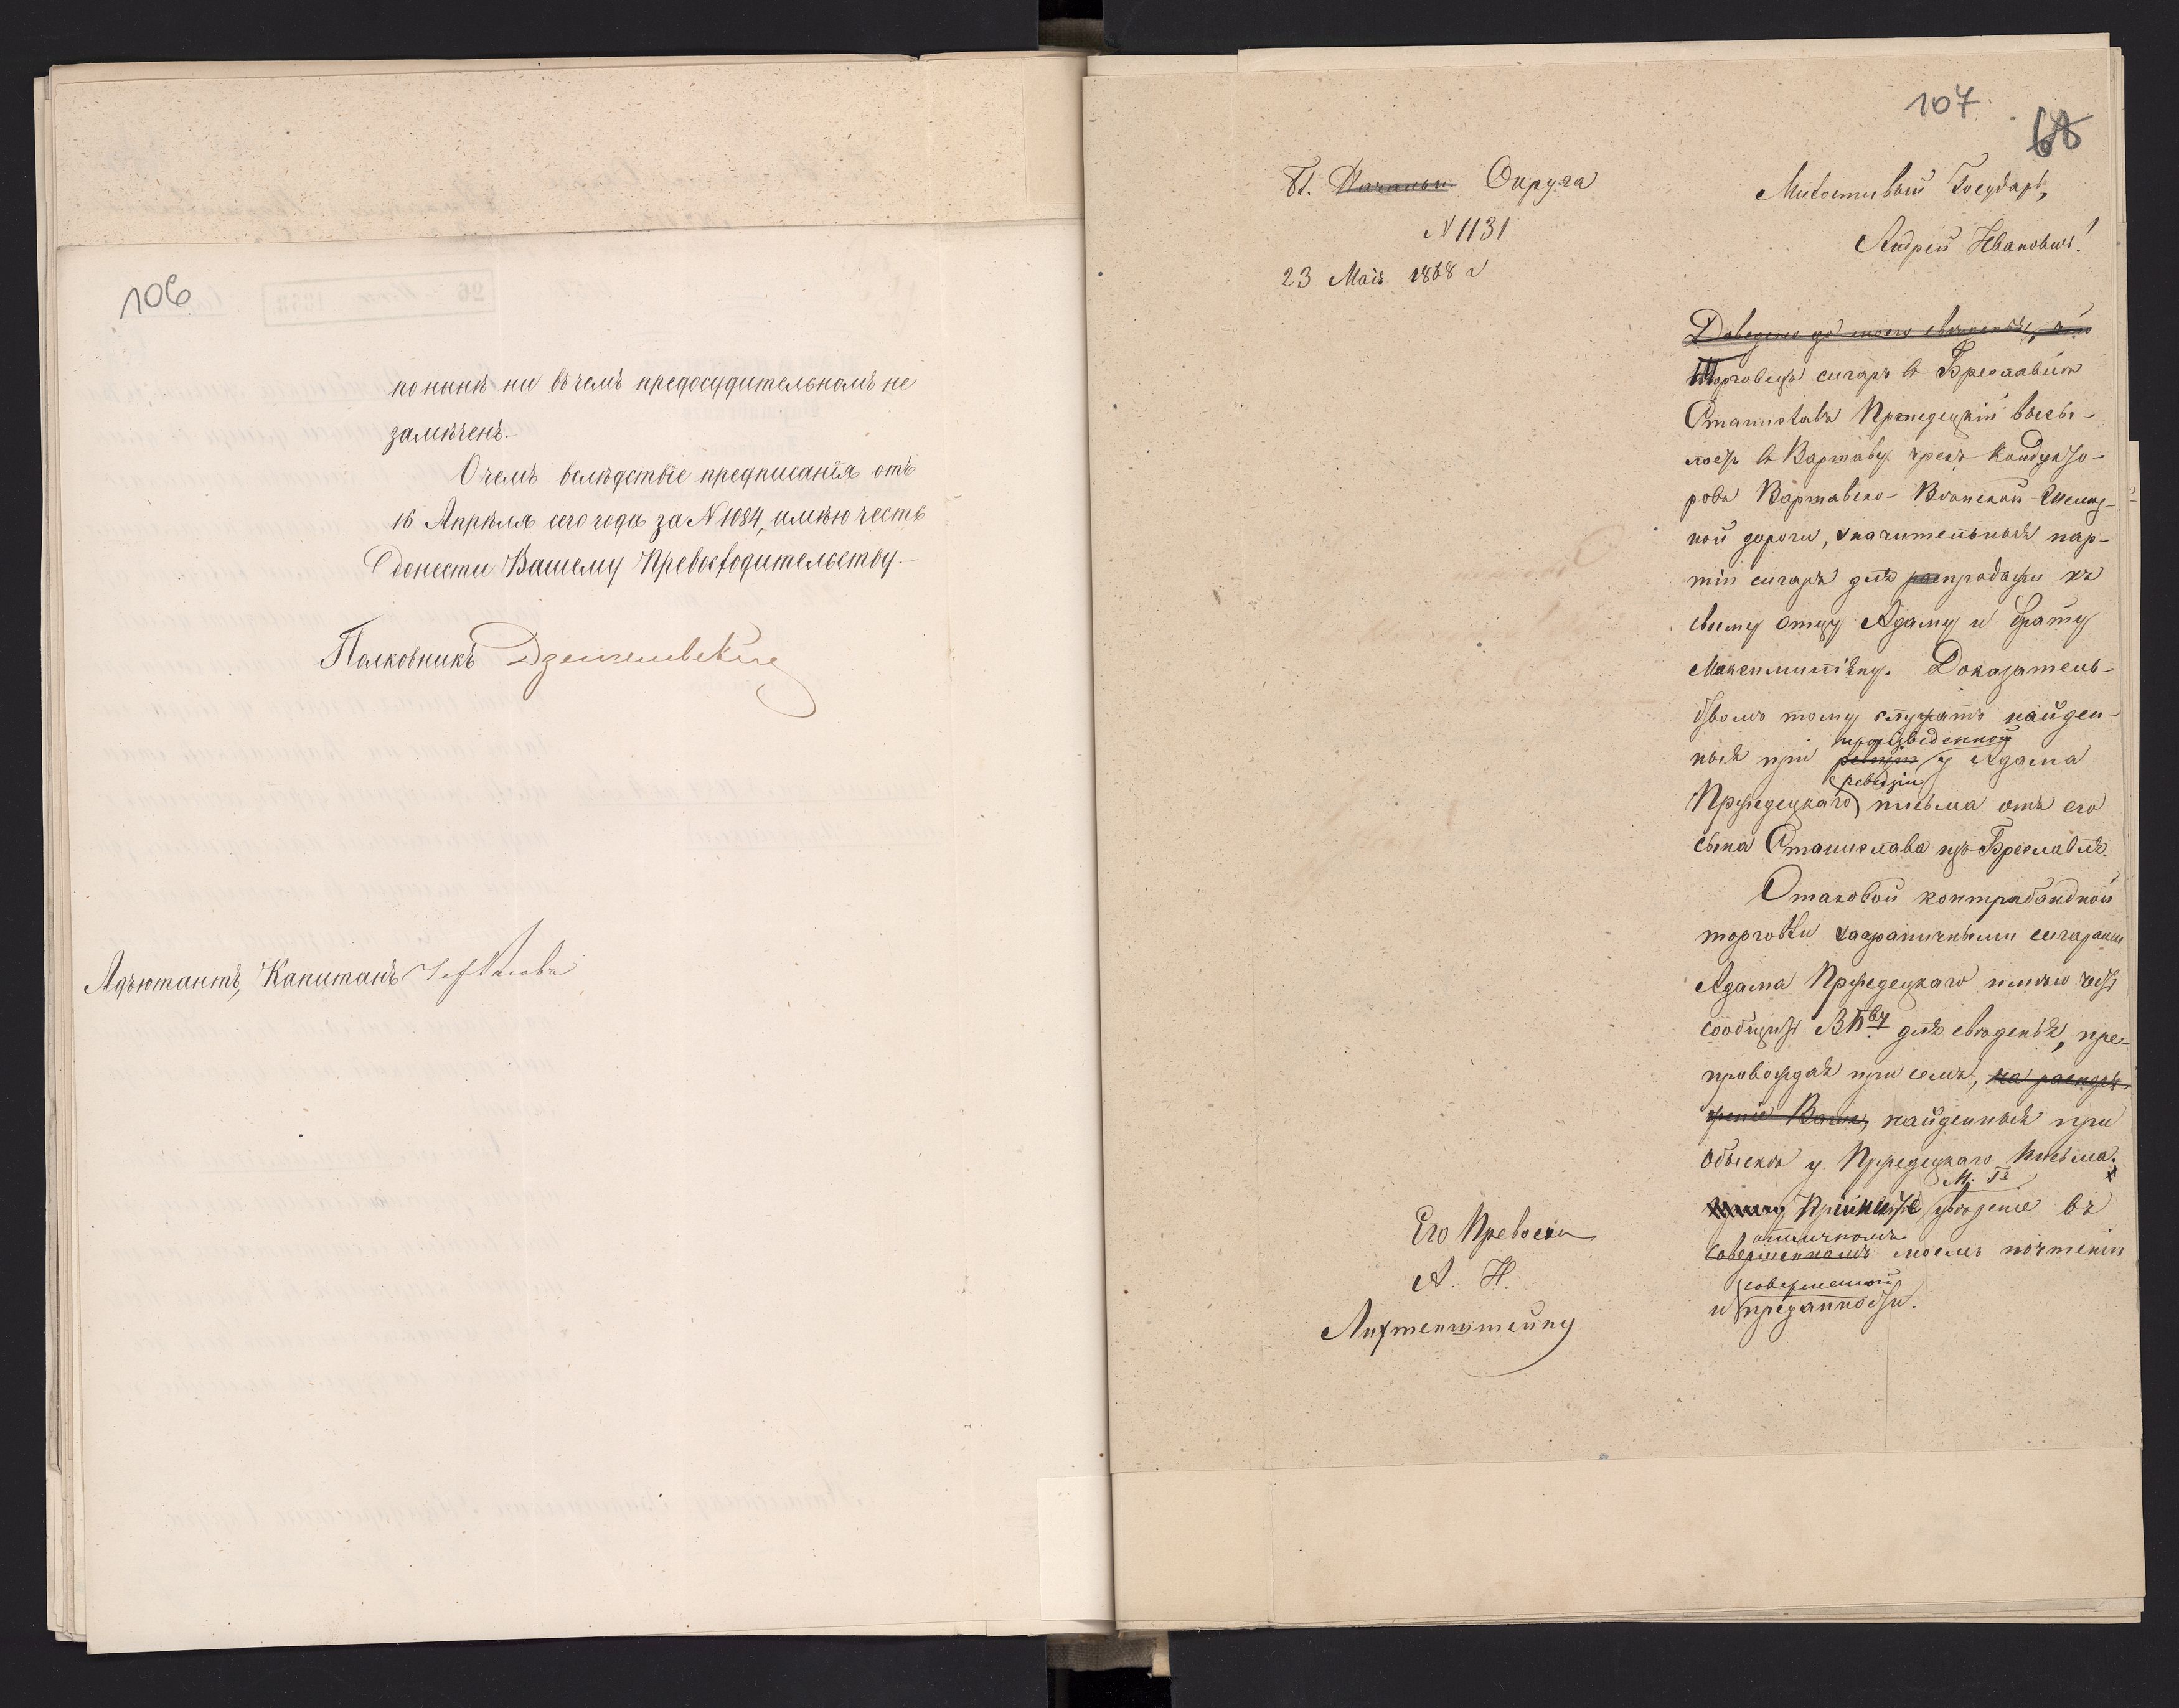 106
по нынѣ ни въ чемъ предосудительномъ не
замѣченъ.
О чемъ вслѣдствіе предписанія отъ
16 Апрѣля сего года за N 1084, имѣю честь
донести Вашему Превосходительству.
Полковникъ
Адъютантъ, Капитанъ
107
68
П. Начальн. Округа
N 1131
23 Мая 1868 г
Милостивый Государь,
Андрей Ивановичъ!
Доведено до моего свѣдѣнія, что
Торговецъ сигаръ въ Бреславлѣ
Станиславъ Пржедецкій высы-
лаетъ въ Варшаву чрезъ Кондукто-
ровъ Варшавско-Вѣнской Желѣз-
ной дороги, значительныя пар-
тіи сигаръ для распродажи къ
своему отцу Адаму и брату
Максимиліану. Доказатель-
ствомъ тому служатъ найден-
произведенной
ныя при ревизіи у Адама
ревизіи
Пржедецкаго письма отъ его
сына Станислава изъ Бреславля.
О таковой контрабандной
торговли заграничными сигарами
Адама Пржедецкаго имѣю честь
сообщить В Пву для свѣденія, пре-
провождая при семъ, на распоря-
женіе Ваше, найденныя при
обыскѣ у Пржедецкаго письма.
М. Гь
Примите увѣреніе въ
отличномъ
совершенномъ моемъ почтеніи
совершенной
и преданности.
Его Превосх
А. И.
Лихтенштейну